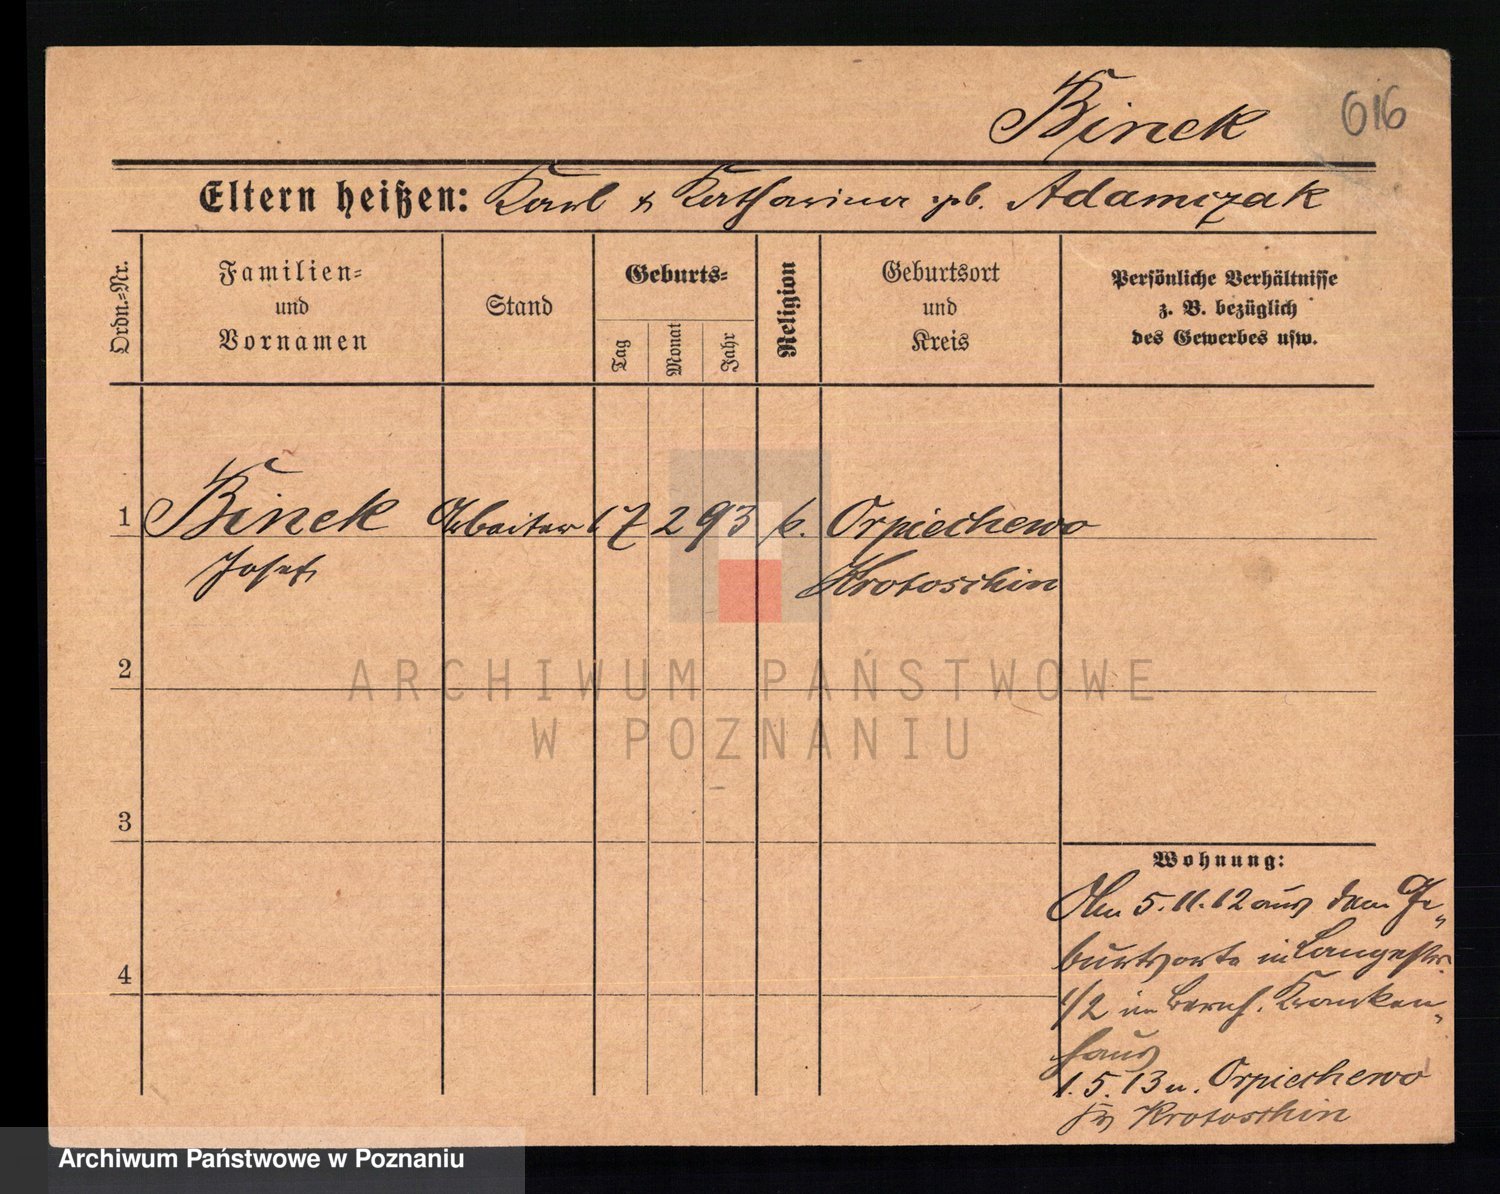 Binek 616
Eltern heißen: Karl & Katharina geb. Adamczak
Ordn.=Nr.
Familien=
und
Vornamen
Stand
Geburts=
Tag
Monat
Jahr
Religion
Geburtsort
und
Kreis
Persönliche Verhältnisse
z. B. bezüglich
des Gewerbes usw.
1 Binek Arbeiter 17 2 93 k. Orpiechewo
Josef Krotoschin
2
ARCHIWUM PAŃSTWOWE
W POZNANIU
3
Wohnung:
Am 5.11.12 aus dem Ge-
burtsorte in Langestr.
1/2 im Kranken-
4
haus
1.5.13 n. Orpiechewo
Krotoschin
Archiwum Państwowe w Poznaniu